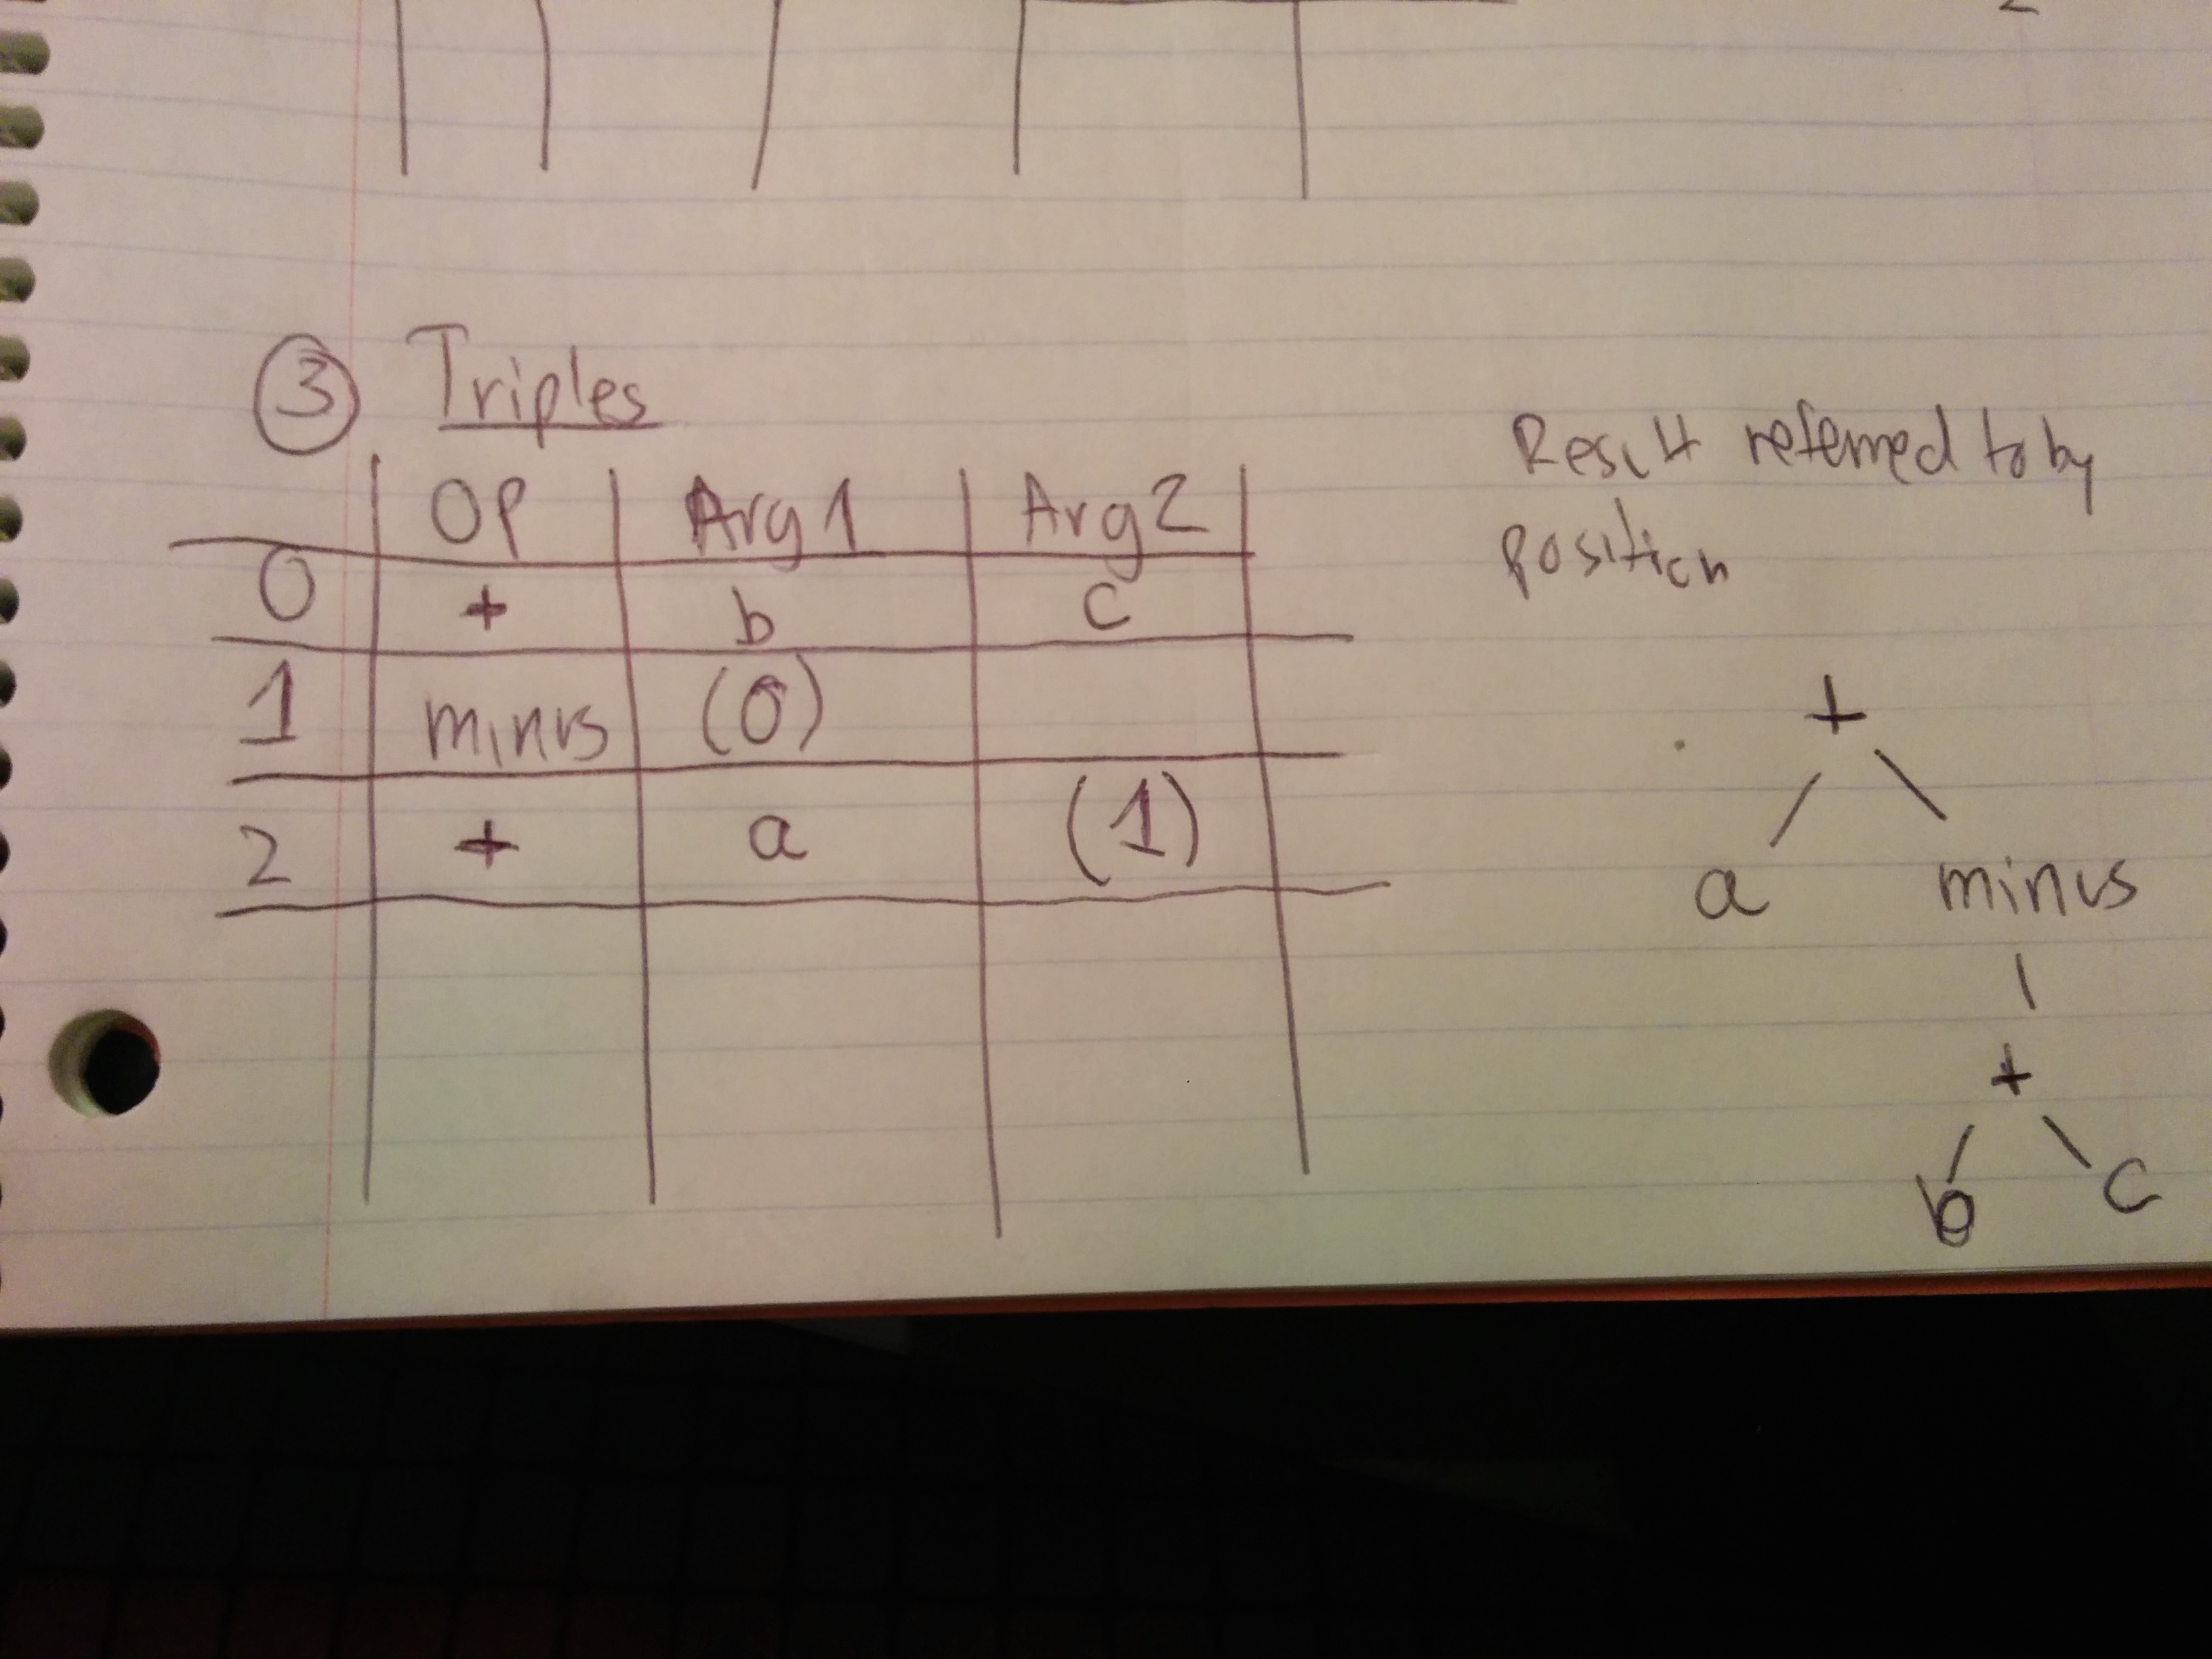 3 Triples
Op Arg1 Arg2
0 + b c
1 minus (0)
2 + a (1)
Result referred to by
position
+
a minus
+
b c